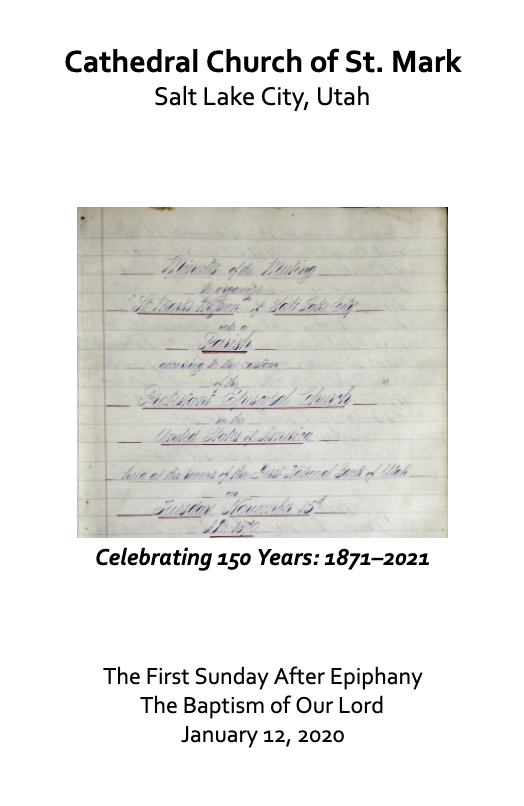 Cathedral Church of St. Mark
Salt Lake City, Utah
Minutes of the Meeting
to organize
"St Mark's of Salt Lake City
into a
Parish
according to the custom
of the
Protestant Episcopal Church
in the
United States of America
held at the rooms of the First National Bank of Utah
on
Tuesday November 15th
A.D. 1870
Celebrating 150 Years: 1871–2021
The First Sunday After Epiphany
The Baptism of Our Lord
January 12, 2020